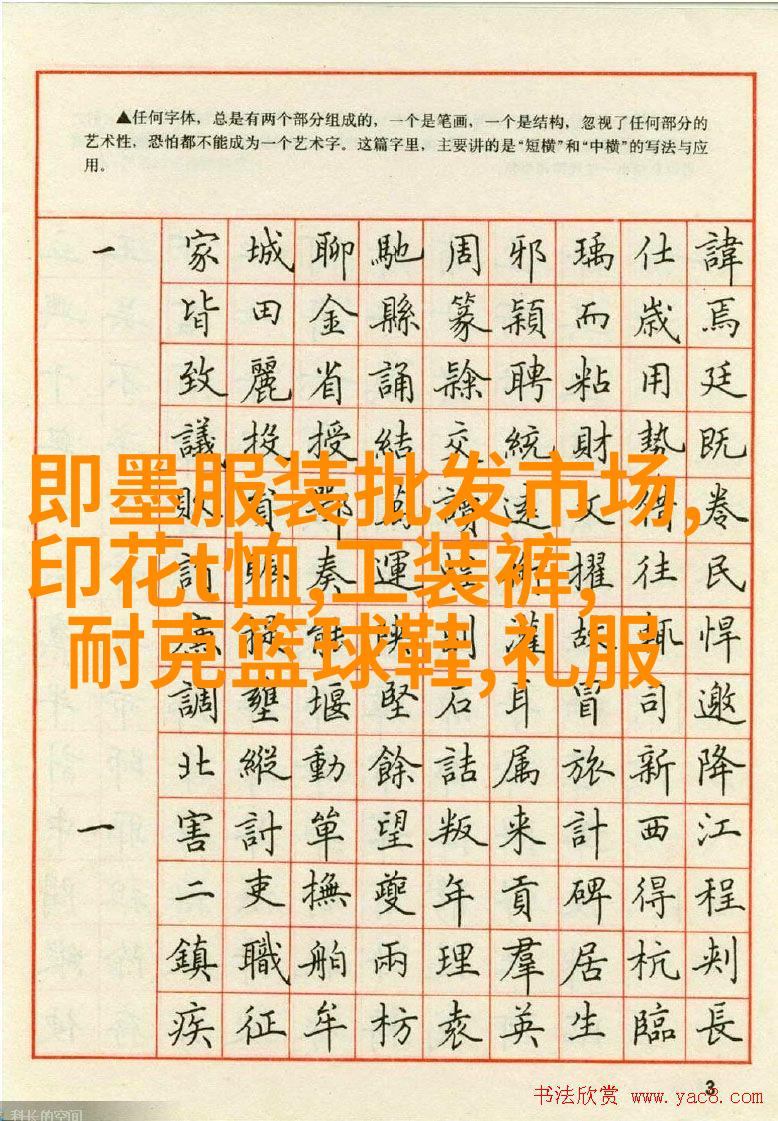 ▲任何字体，总是有两个部分组成的，一个是笔画，一个是结构，忽视了任何部分的
艺术性，恐怕都不能成为一个艺术字。这篇字里，主要讲的是“短横”和“中横”的写法与应
用。
一 家 城 聊 馳 周 邪 瑀 仕 諱
皆 田 金 縣 篆 潁 而 歲 焉
致 麗 省 誦 隸 聘 粘 用 廷
議 投 授 結 交 統 財 勢 既
即墨服装批发市场,
印花t恤,工装裤,
耐克篮球鞋,礼服
文 借 卷
討 奏 運 擢 往 民
故 輒 悍
調 壅 堰 堅 石 耳 冒 司 邀
北 縱 動 餘 詰 属 旅 新 降
一 害 討 單 望 叛 来 計 西 江
二 吏 撫 夔 年 貢 碑 得 程
鎮 職 舶 兩 理 羣 居 杭 刺
疾 征 牟 枋 袁 英 生 臨 長
3
书法欣赏 www.yac8.com
科长的空间